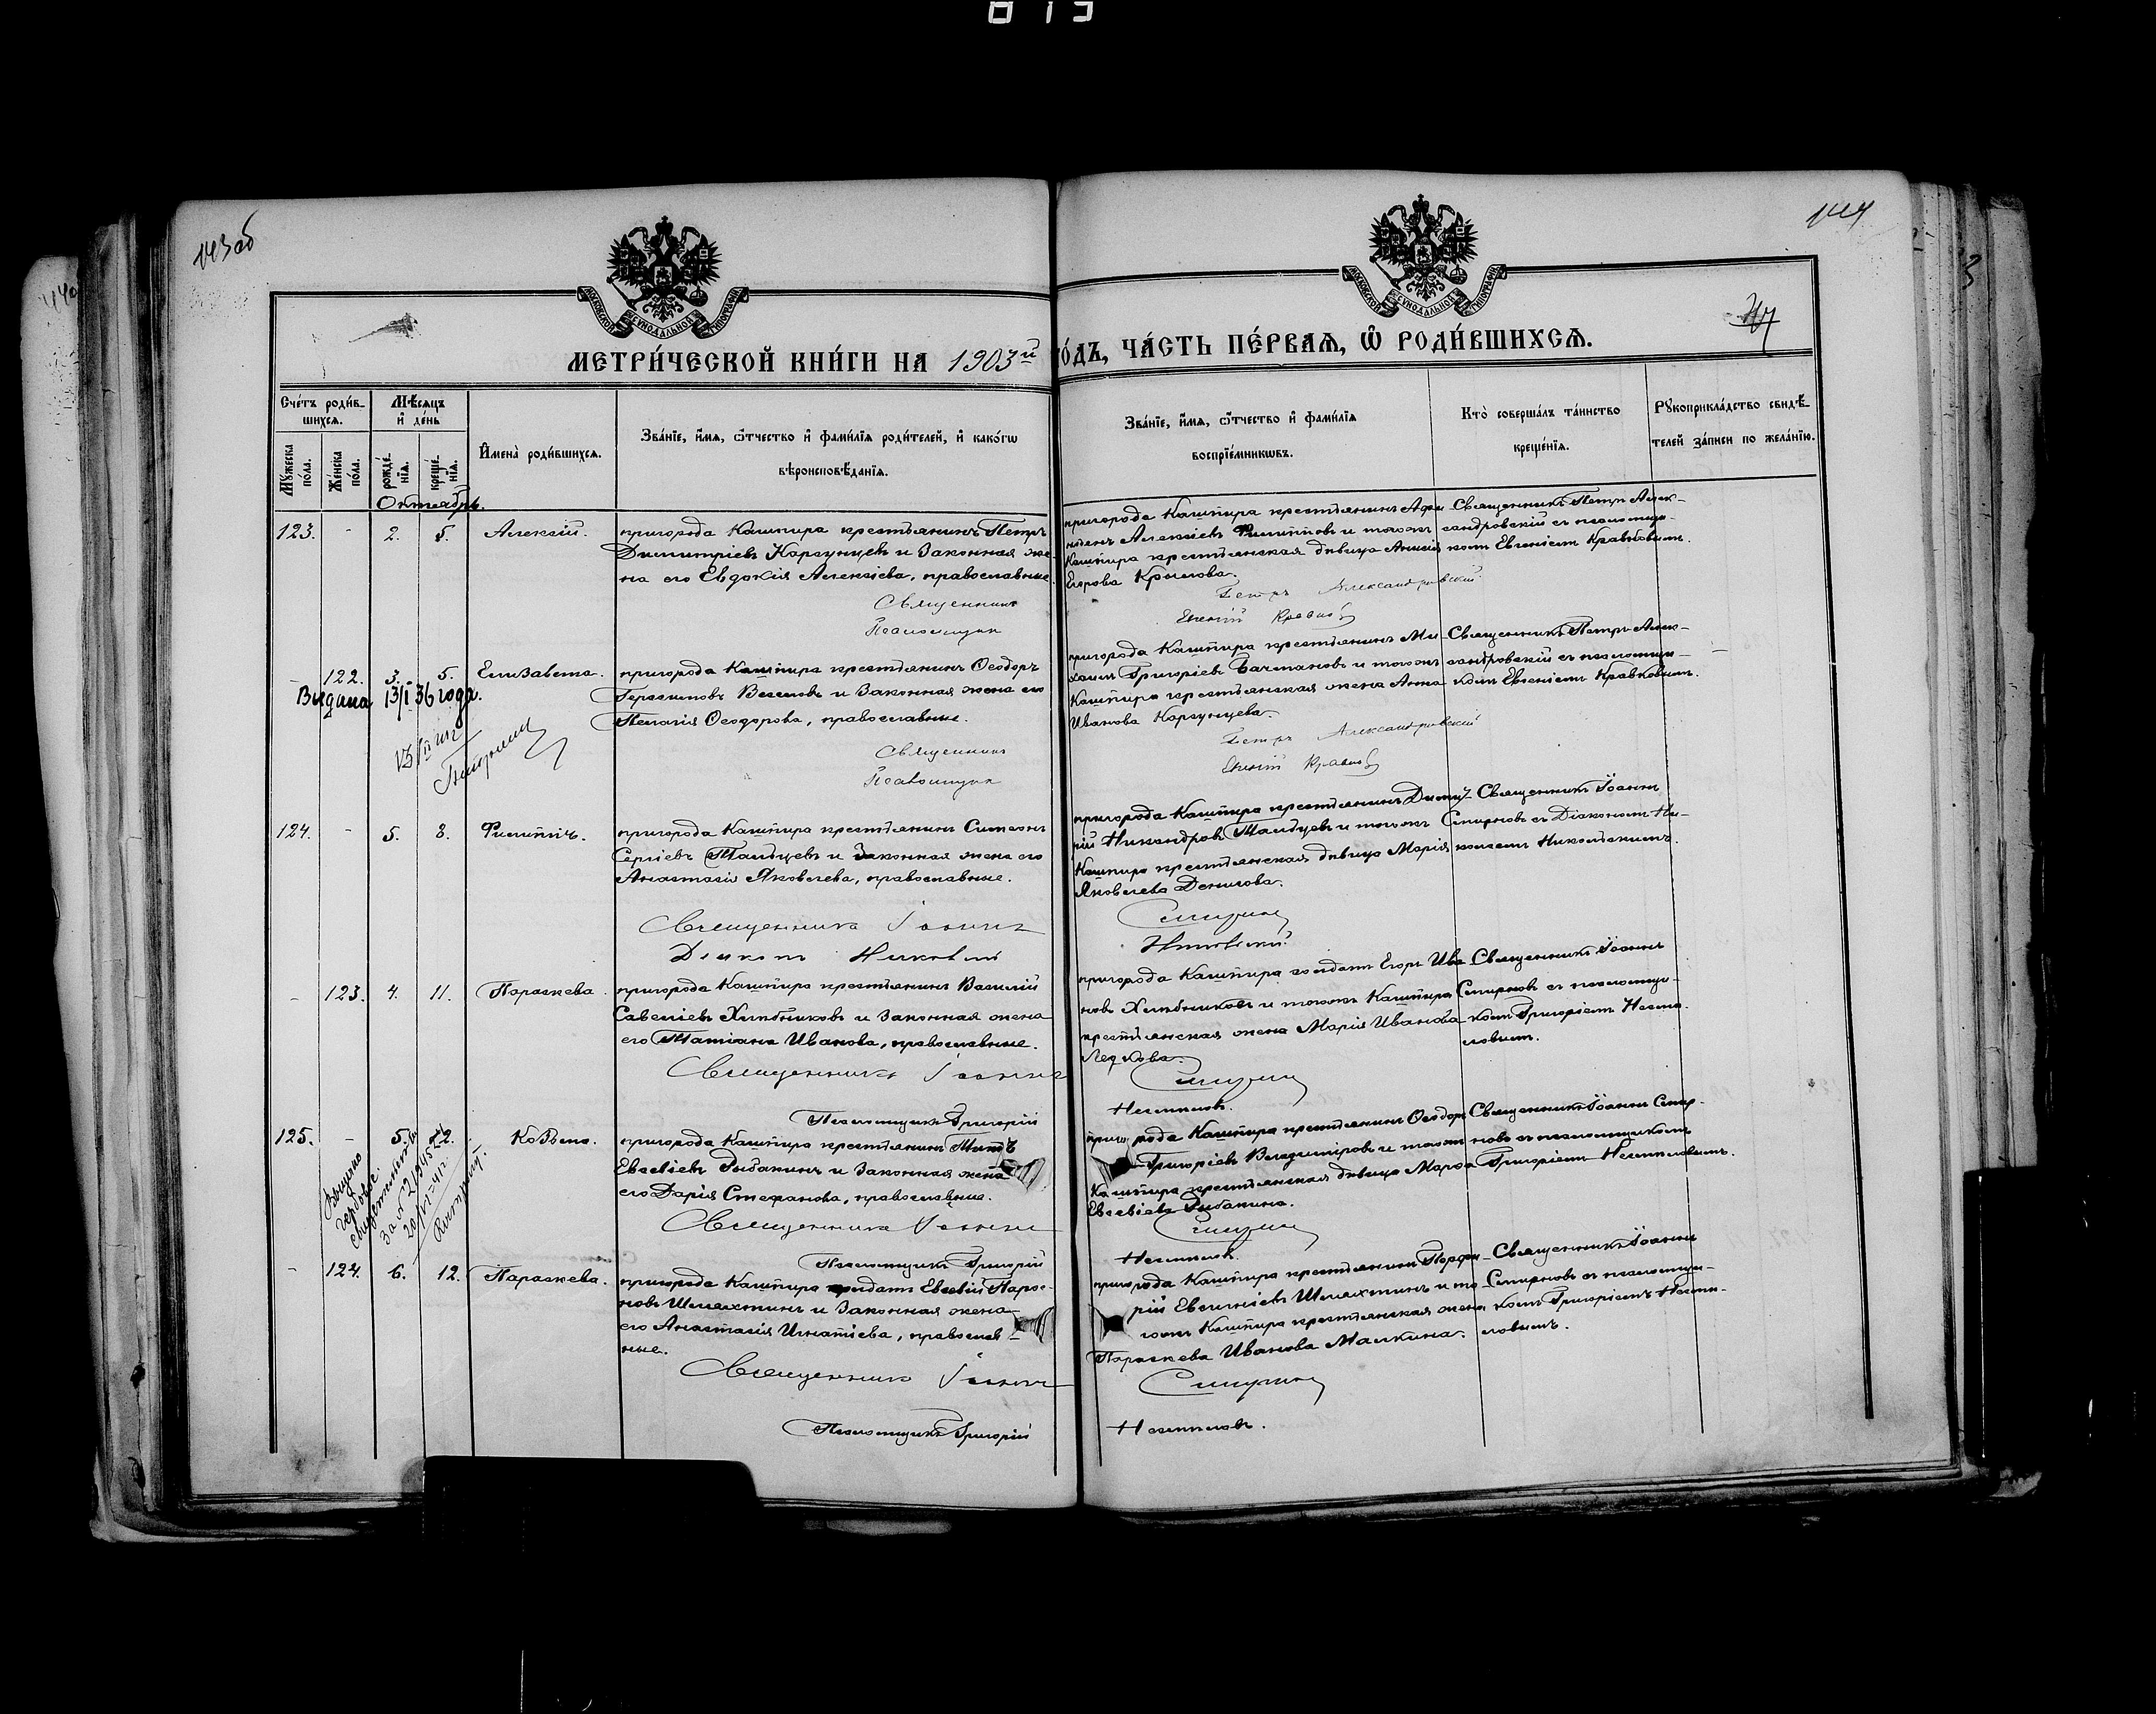 143об
144
МЕТРИ́ЧЕСКОЙ КНИ́ГИ НА 1903й
ГО́ДЪ, ЧА́СТЬ ПЕ́РВАѦ, Ѽ РОДИ́ВШИХСѦ.
МОСКОВСКОЙ СѴНОДАЛЬНОЙ ТИПОГРАФІИ
МОСКОВСКОЙ СѴНОДАЛЬНОЙ ТИПОГРАФІИ
Сче́тъ роди́в-
шихсѧ.
Мѣ́сѧцъ
и҆ де́нь
Мꙋ́жеска по́ла.
Же́нска по́ла.
рожде́-нїѧ.
креще́-нїѧ.
И҆мена̀ роди́вшихсѧ.
Зва́нїе, и҆́мѧ, ѻ҆́тчество и҆ фами́лїѧ роди́телей, и҆ како́гѡ
вѣроисповѣ́данїѧ.
Зва́нїе, и҆́мѧ, ѻ҆́тчество и҆ фами́лїѧ
воспрїе́мникѡвъ.
Кто̀ соверша́лъ та́инство
креще́нїѧ.
Рꙋкоприкла́дство свидѣ́-
телей за́писи по жела́нїю.
Октябрь.
123. - 2. 5. Алексій.
пригорода Кашпира крестьянинъ Петръ
Димитріевъ Каргунцевъ и законная же-
на его Евдокія Алексіева, православные.
Священникъ
Псаломщикъ
пригорода Кашпира крестьянинъ Афи-
ногенъ Алексіевъ Филипповъ и тогожъ
Кашпира крестьянская дѣвица Анисія
Егорова Крылова.
Петръ Александровскій
Евгеній Кравковъ
Священникъ Петръ Алек-
сандровскій съ псаломщи-
комъ Евгеніемъ Кравковымъ.
- 122. 3. 5. Елизавета.
Выдана 13/I 36 года.
пригорода Кашпира крестьянинъ Ѳеодоръ
Герасимовъ Веселовъ и законная жена его
Пелагія Ѳеодорова, православные.
Священникъ
Псаломщикъ
пригорода Кашпира крестьянинъ Ми-
хаилъ Григоріевъ Бахмановъ и тогожъ
Кашпира крестьянская жена Анна
Иванова Каргунцева.
Петръ Александровскій
Евгеній Кравковъ
Священникъ Петръ Алек-
сандровскій съ псаломщи-
комъ Евгеніемъ Кравковымъ.
124. - 5. 8. Филиппъ.
пригорода Кашпира крестьянинъ Симеонъ
Сергіевъ Мальцевъ и законная жена его
Анастасія Яковлева, православные.
Священникъ Іоаннъ
Діаконъ Николай
пригорода Кашпира крестьянинъ Димит-
рій Никандровъ Мальцевъ и тогожъ
Кашпира крестьянская дѣвица Марія
Яковлева Денисова.
Смирновъ
Никольскій
Священникъ Іоаннъ
Смирновъ съ Діакономъ Ни-
колаемъ Никольскимъ.
- 123. 4. 11. Параскева.
пригорода Кашпира крестьянинъ Василій
Савеліевъ Хлѣбниковъ и законная жена
его Татіана Иванова, православные.
Священникъ Іоаннъ
Псаломщикъ Григорій
пригорода Кашпира солдатъ Егоръ Ива-
новъ Хлѣбниковъ и тогожъ Кашпира
крестьянская жена Марія Иванова
Смирновъ
Священникъ Іоаннъ
Смирновъ съ псаломщи-
комъ Григоріемъ
125. - 5. 12. Козьма.
Выдано
за № 2
20/VI-41г.
пригорода Кашпира крестьянинъ
Евсевіевъ Рыбакинъ и законная жена
его Дарія Стефанова, православные.
Священникъ Іоаннъ
Псаломщикъ Григорій
пригорода Кашпира крестьянинъ Ѳеодоръ
Григоріевъ Владиміровъ и тогожъ
Кашпира крестьянская дѣвица Марѳа
Евсевіева Рыбакина.
Смирновъ
Священникъ Іоаннъ Смир-
новъ съ псаломщикомъ
Григоріемъ
- 124. 6. 12. Параскева.
пригорода Кашпира солдатъ Евсевій
Шлыхтинъ и законная жена
его Анастасія Игнатіева, православ-
ные.
Священникъ Іоаннъ
Псаломщикъ Григорій
пригорода Кашпира крестьянинъ Порфи-
рій Шлыхтинъ и то-
гожъ Кашпира крестьянская жена
Параскева Иванова Малкина.
Смирновъ
Священникъ Іоаннъ
Смирновъ съ псаломщи-
комъ Григоріемъ